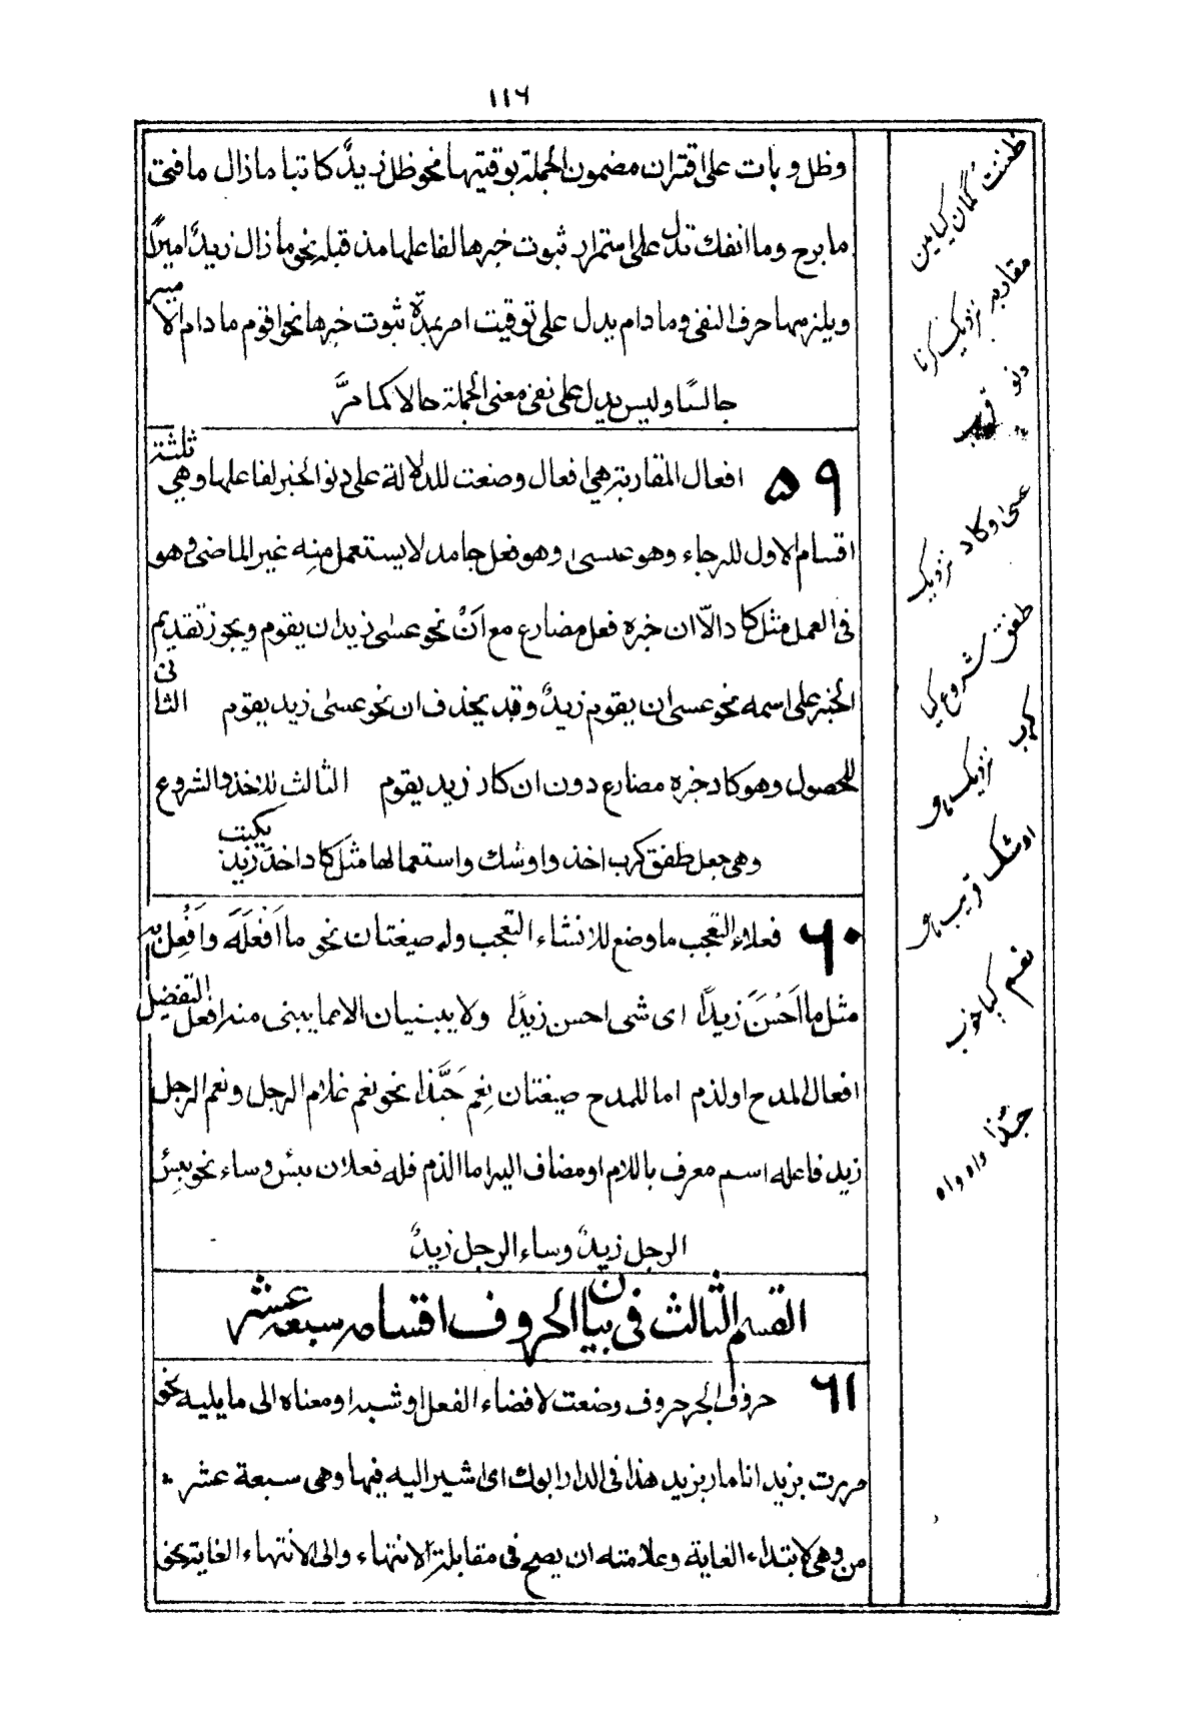 ١١٦
وظل وبات على اقتران مضمون الجملة بوقتيها نحو ظل زيدٌ كاتبا ما زال ما فتئ
ما برح وما انفك تدل على استمرار ثبوت خبرها لفاعلها مذ قبله نحو ما زال زيدٌ اميرًا
ويلزمها حرف النفى وما دام يدل على توقيت امر بمدّة ثبوت خبرها نحو اقوم ما دام الامير
جالسًا وليس يدل على نفى معنى الجملة حالا كما مرَّ
٥٩ افعال المقاربة هي افعال وضعت للدلالة على دنو الخبر لفاعلها وهي ثلثة
اقسام الاول للرجاء وهو عسىٰ وهو فعل جامد لا يستعمل منه غير الماضى وهو
فى العمل مثل كاد الّا ان خبره فعل مضارع مع اَنْ نحو عسٰى زيد ان يقوم ويجوز تقديم
الخبر على اسمه نحو عسى ان يقوم زيدٌ وقد يحذف ان نحو عسٰى زيد يقوم الثانى
للحصول وهو كاد خبره مضارع دون ان كاد زيد يقوم الثالث للاخذ والشروع
وهى جعل طفق كرب اخذ واوشك واستعمالها مثل كاد اخذ زيد يكتب
٦٠ فعلاء التعجب ما وضع للانشاء التعجب وله صيغتان نحو ما اَفْعَلَهٗ واَفْعِلْ بهٖ
مثل ما اَحْسَنَ زيدًا اى شى احسن زيدًا ولا يبنيان الا مما يبنى منه افعل التفضيل
افعال المدح او لذم اما للمدح صيغتان نِعْمَ حَبَّذا نحو نعم غلام الرجل ونعم الرجل
زيد فاعله اسم معرف باللام او مضاف اليه اما الذم فله فعلان بئس وساء نحو بِئس
الرجل زيدٌ وساء الرجل زيدٌ
القسم الثالث فى بيان الحروف اقسامه سبعة عشر
٦١ حروف الجر حروف وضعت لافضاء الفعل او شبه او معناه الى ما يليه نحو
مررت بزيد انا مار بزيد هذا فى الدار ابوك اى اشير اليه فيها وهى سبعة عشر
من وهى لابتداء الغاية وعلامته ان يصح فى مقابلة الانتهاء والى لانتهاء الغاية نحو
ظننت گمان کیا میں
مقاربہ نزدیک کرنا
دنو قریب
عسٰى وکاد نزدیک
طفق شروع کیا
کرب نزدیک
اوشک قریب
نعم کیا خوب
حبّذا واہ واہ